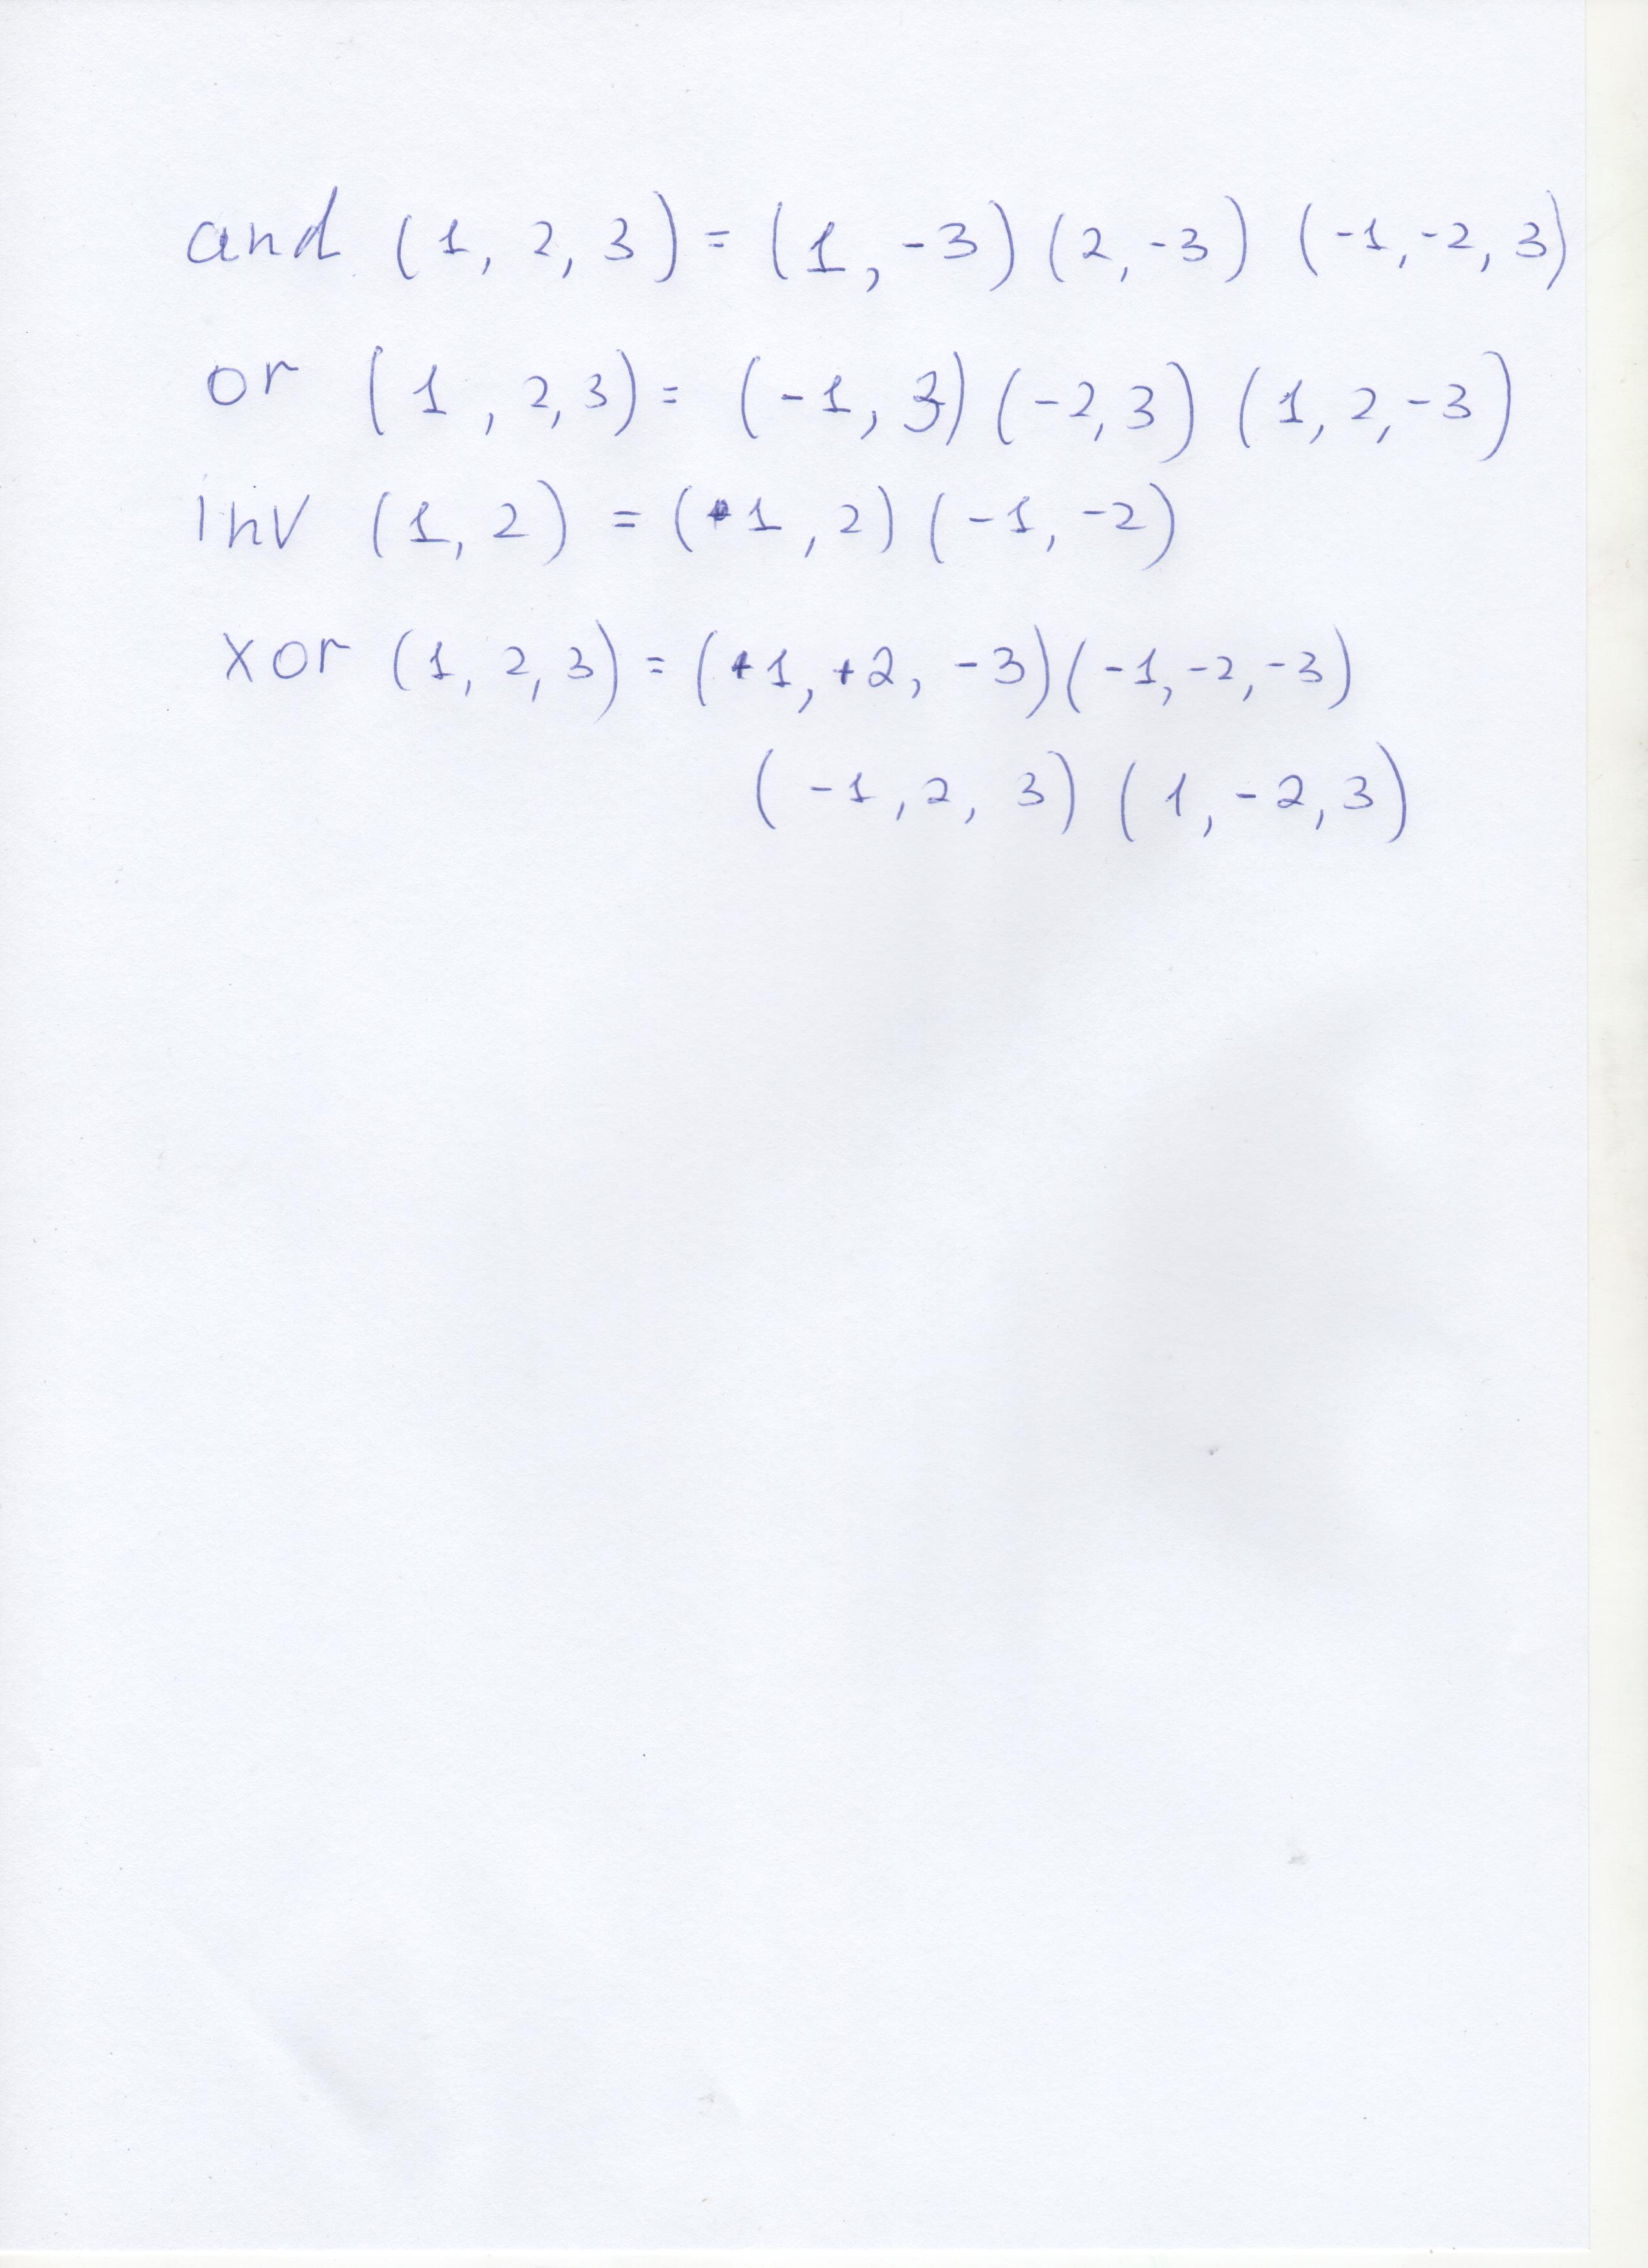 and (1, 2, 3) = (1, -3) (2, -3) (-1, -2, 3)
or (1, 2, 3) = (-1, 3) (-2, 3) (1, 2, -3)
inv (1, 2) = (+1, 2) (-1, -2)
xor (1, 2, 3) = (+1, +2, -3) (-1, -2, -3)
(-1, 2, 3) (1, -2, 3)